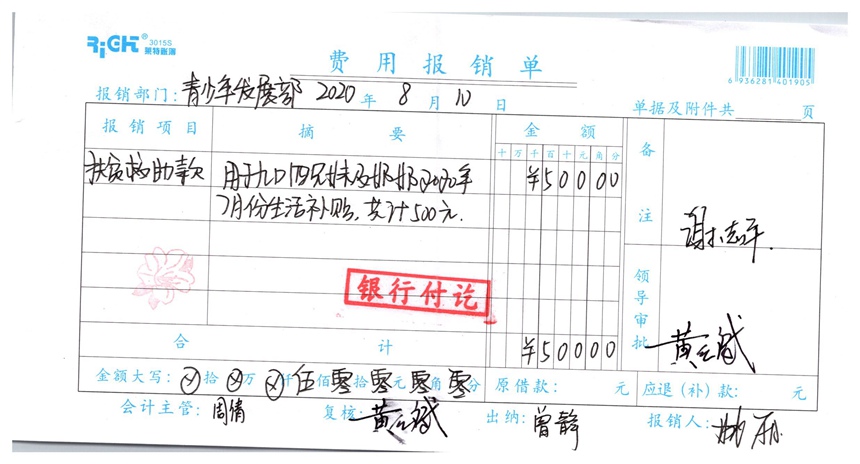 RiGHT® 3015S
莱特账簿
费用报销单
6 936281 401905
报销部门：青少年发展部 2020年8月10日
单据及附件共 页
报销项目 摘要 金额 备注
十万千百十元角分
扶贫救助款 用于九口四兄妹及 2020年 ¥50000
7月份生活补贴，共计500元.
谢志平.
银行付讫
领导审批
合计 ¥50000
金额大写：拾万仟伍佰零拾零元零角零分 原借款： 元 应退（补）款： 元
会计主管：周倩 复核：黄 出纳：曾静 报销人：